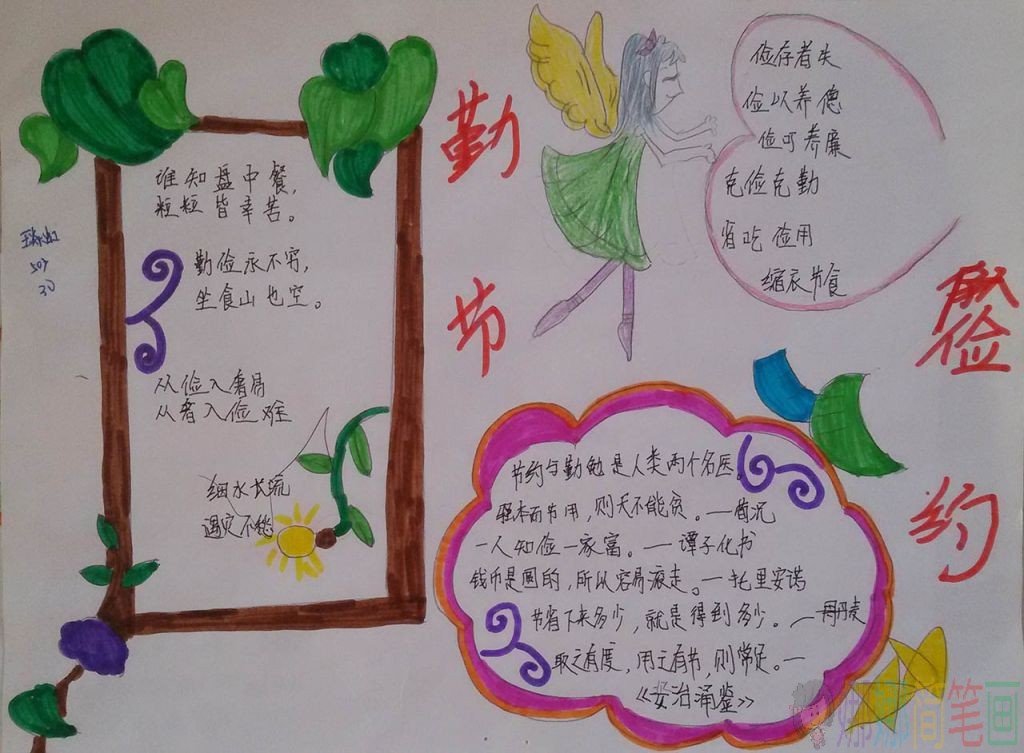 勤
节
俭
约
谁知盘中餐，
粒粒皆辛苦。
勤俭永不穷，
坐食山也空。
从俭入奢易
从奢入俭难
细水长流
遇灾不愁
507
30
俭存奢失
俭以养德
俭可养廉
克俭克勤
省吃俭用
缩衣节食
节约与勤勉是人类两个名医。
强本而节用，则天不能贫。——荀况
一人知俭一家富。——谭子化书
钱币是圆的，所以容易滚走。——托里安诺
节省下来多少，就是得到多少。——丹麦
取之有度，用之有节，则常足。——
《资治通鉴》
娜娜简笔画